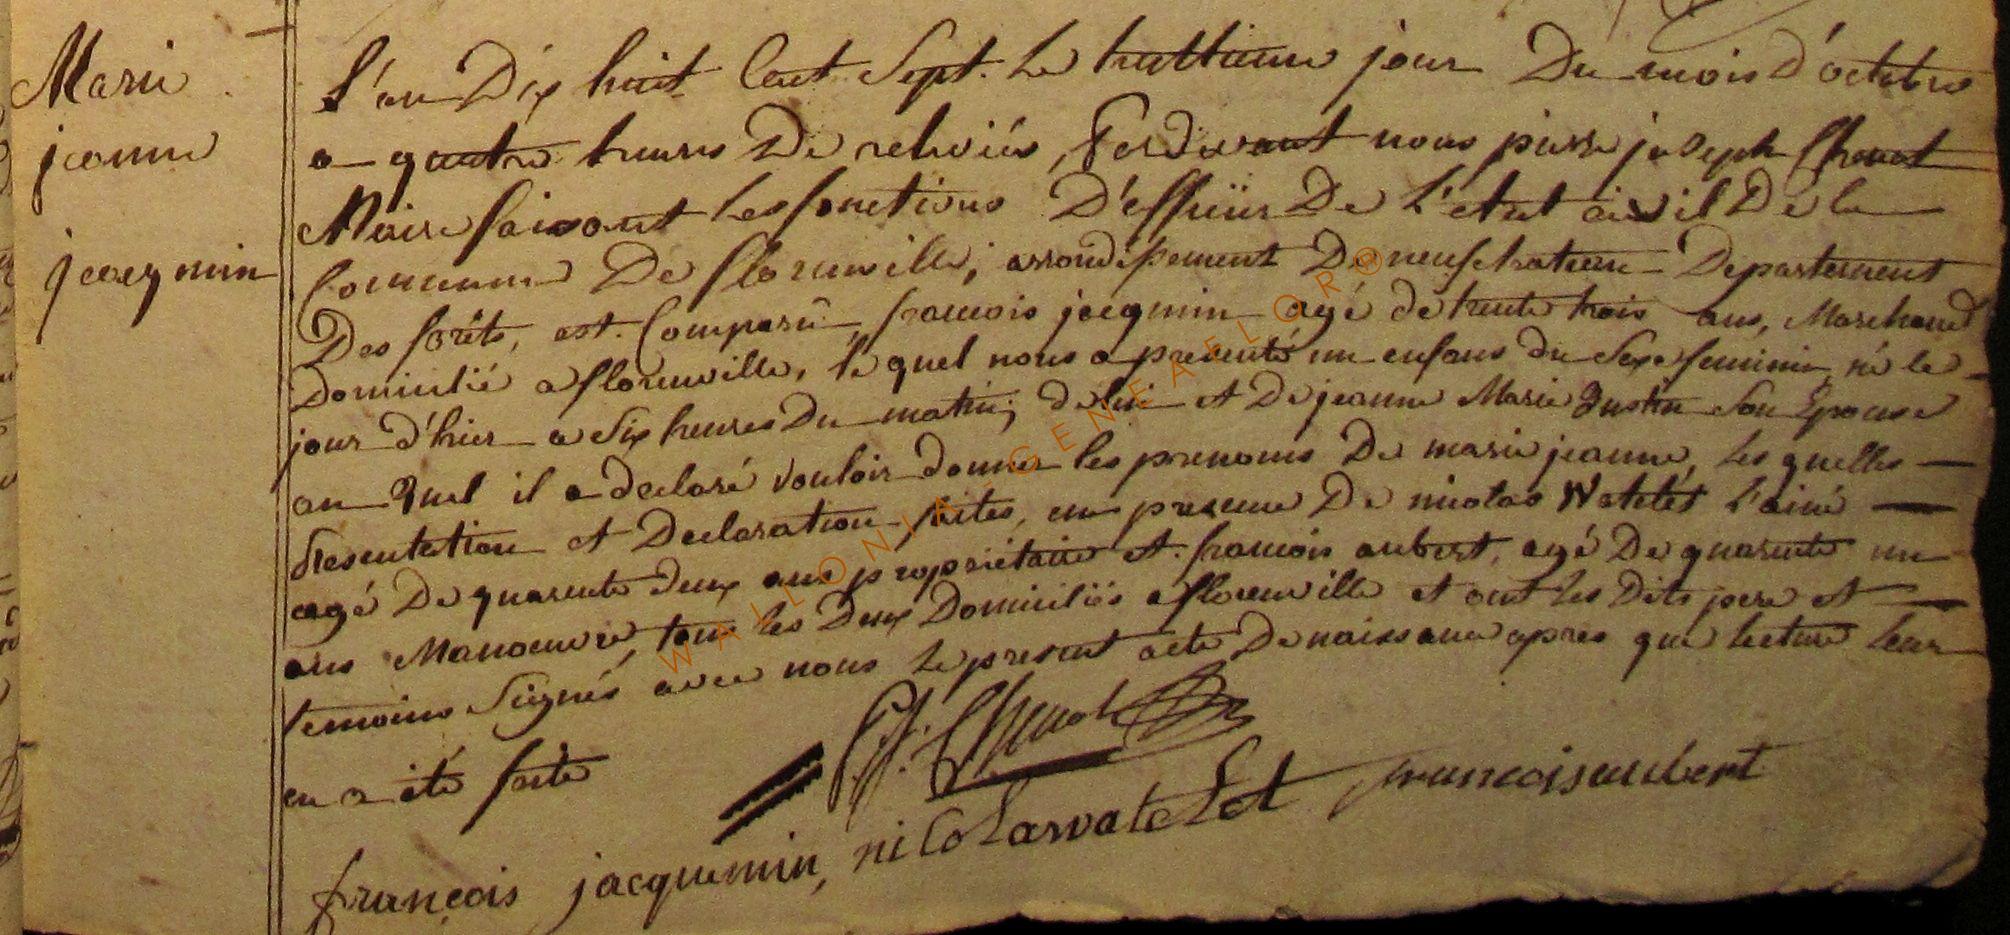 Marie
jeanne
jacqmin
L'an Dix huit Cent Sept. Le huitieme jour Du mois D'octobre
a quatre heures De relevées, Pardevant nous pierre joseph
Maire faisant Les fonctions D'officier De L'etat civil De la
Commune De florenville, arrondissement De neufchateau Departement
Des forêts, est. Comparû françois jacqmin agé de trente trois ans, Marchand
Domicilié a florenville, le quel nous a presenté un enfans du Sexe feminin né le
jour d'hier a Six heures Du matin, de lui et De jeanne Marie Son Epouse
au Quel il a declaré vouloir donner les prenoms De marie jeanne, Les quelles
Presentation et Declaration faites, en presence De nicolas Watelet L'ainé
agé De quarente deux ans proprietaire et. francois aubert, agé De quarente un
ans Manoeuvre, tous les Deux Domiciliés a florenville et ont Les Dits pere et
temoins Signés avec nous Le present acte De naissance apres que lecture Leur
en a été faite
P.J.
françois jacquemin, nicolas watelet francois aubert
WALLONIA-GENEAFLOR@